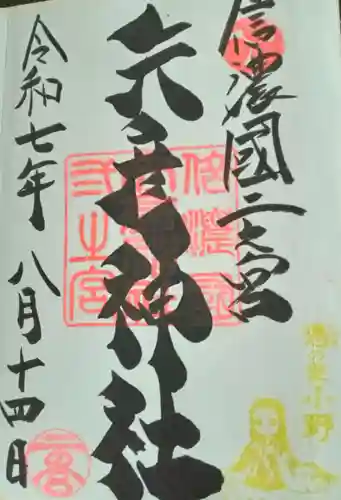 信濃國二之宮
矢彦神社
令和七年 八月十四日
信濃国
弐之宮
小野